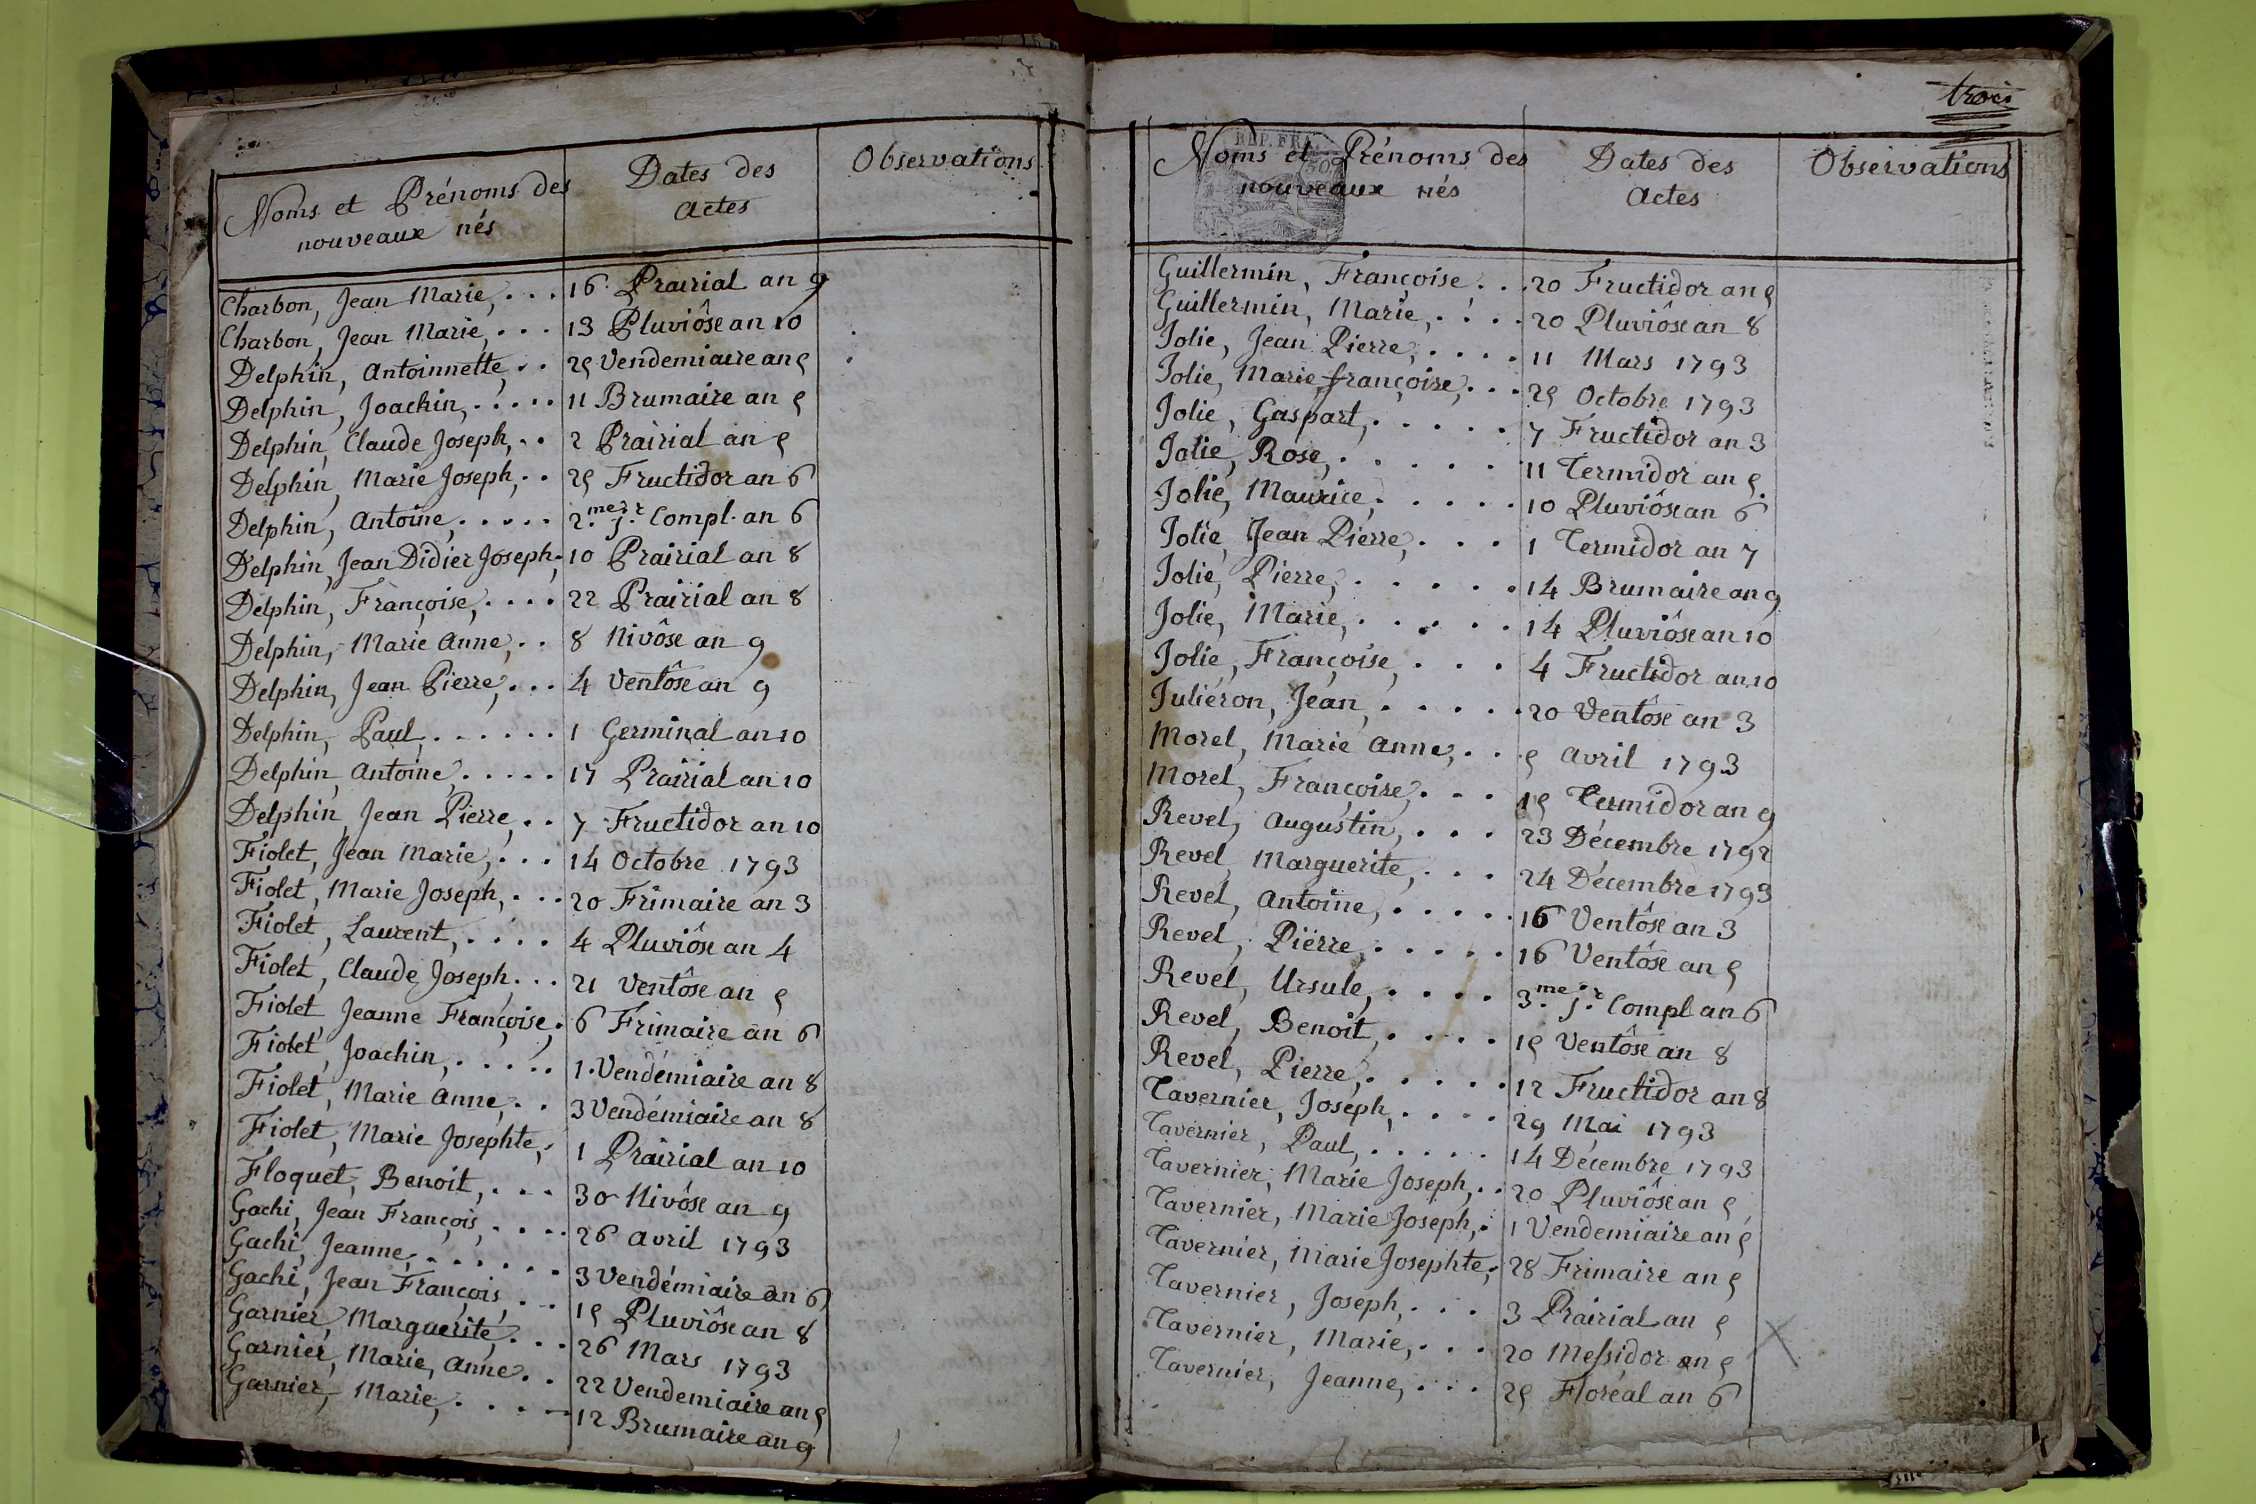 Noms et Prénoms des
nouveaux nés
Dates des
actes
Observations
Charbon, Jean Marie, . . . 16 Prairial an 9
Charbon, Jean Marie, . . . 13 Pluviôse an 10
Delphin, Antoinnette, . . 25 Vendemiaire an 5
Delphin, Joachin, . . . . . 11 Brumaire an 5
Delphin, Claude Joseph, . . 2 Prairial an 5
Delphin, Marie Joseph, . . 25 Fructidor an 6
Delphin, Antoine, . . . . . 2.me j.r Compl. an 6
Delphin, Jean Didier Joseph, 10 Prairial an 8
Delphin, Françoise, . . . . 22 Prairial an 8
Delphin, Marie Anne, . . 8 Nivôse an 9
Delphin, Jean Pierre, . . . 4 Ventôse an 9
Delphin, Paul, . . . . . . 1 Germinal an 10
Delphin, Antoine, . . . . . 17 Prairial an 10
Delphin, Jean Pierre, . . 7 Fructidor an 10
Fiolet, Jean Marie, . . . 14 Octobre 1793
Fiolet, Marie Joseph, . . . 20 Frimaire an 3
Fiolet, Laurent, . . . . 4 Pluviôse an 4
Fiolet, Claude Joseph . . . 21 Ventôse an 5
Fiolet Jeanne Françoise, 6 Frimaire an 6
Fiolet, Joachin, . . . . . 1. Vendémiaire an 8
Fiolet, Marie Anne, . . 3 Vendémiaire an 8
Fiolet, Marie Josephte, . 1 Prairial an 10
Floquet, Benoit, . . . 30 Nivôse an 9
Gachi, Jean François, . . . . 26 Avril 1793
Gachi, Jeanne, . . . . . . 3 Vendémiaire an 6
Gachi, Jean François, . . 15 Pluviôse an 8
Garnier, Marguerite, . . . 26 Mars 1793
Garnier, Marie, Anne . . 22 Vendemiaire an 5
Garnier, Marie, . . . . 12 Brumaire an 9
trois
REP. FRA.
50
Noms et Prénoms des
nouveaux nés
Dates des
Actes
Observations
Guillermin, Françoise . . . 20 Fructidor an 5
Guillermin, Marie, . . . . 20 Pluviôse an 8
Jolie, Jean Pierre, . . . . 11 Mars 1793
Jolie, Marie françoise, . . . 25 Octobre 1793
Jolie, Gaspart, . . . . . 7 Fructidor an 3
Jolie, Rose, . . . . . 11 Termidor an 5.
Jolie, Maurice, . . . . . 10 Pluviôse an 6
Jolie, Jean Pierre, . . . 1 Termidor an 7
Jolie, Pierre, . . . . . 14 Brumaire an 9
Jolie, Marie, . . . . . 14 Pluviôse an 10
Jolie, Françoise, . . . 4 Fructidor an 10
Juliéron, Jean, . . . . . 20 Ventôse an 3
Morel, Marie Anne, . . . 5 Avril 1793
Morel, Françoise, . . . 15 Termidor an 9
Revel, Augustin, . . . 23 Décembre 1792
Revel, Marguerite, . . . 24 Décembre 1793
Revel, Antoine, . . . . . 16 Ventôse an 3
Revel, Pierre, . . . . . 16 Ventôse an 5
Revel, Ursule, . . . . 3.me j.r Compl an 6
Revel, Benoit, . . . . 15 Ventôse an 8
Revel, Pierre, . . . . . 12 Fructidor an 8
Tavernier, Joseph, . . . . 29 Mai 1793
Tavernier, Paul, . . . . . 14 Décembre 1793
Tavernier, Marie Joseph, . . 20 Pluviôse an 5
Tavernier, Marie Joseph, . 1 Vendemiaire an 5
Tavernier, Marie Josephte, . 28 Frimaire an 5
Tavernier, Joseph, . . . 3 Prairial an 5
Tavernier, Marie, . . . 20 Messidor an 5
Tavernier, Jeanne, . . . 25 Floréal an 6